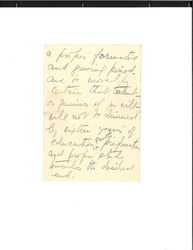 a proper formative
and growing period.
and so morally
certain that talent
or genius of
will not be dimmed
by sixteen years of
education, preparation
and proper study
towards the desired
end.